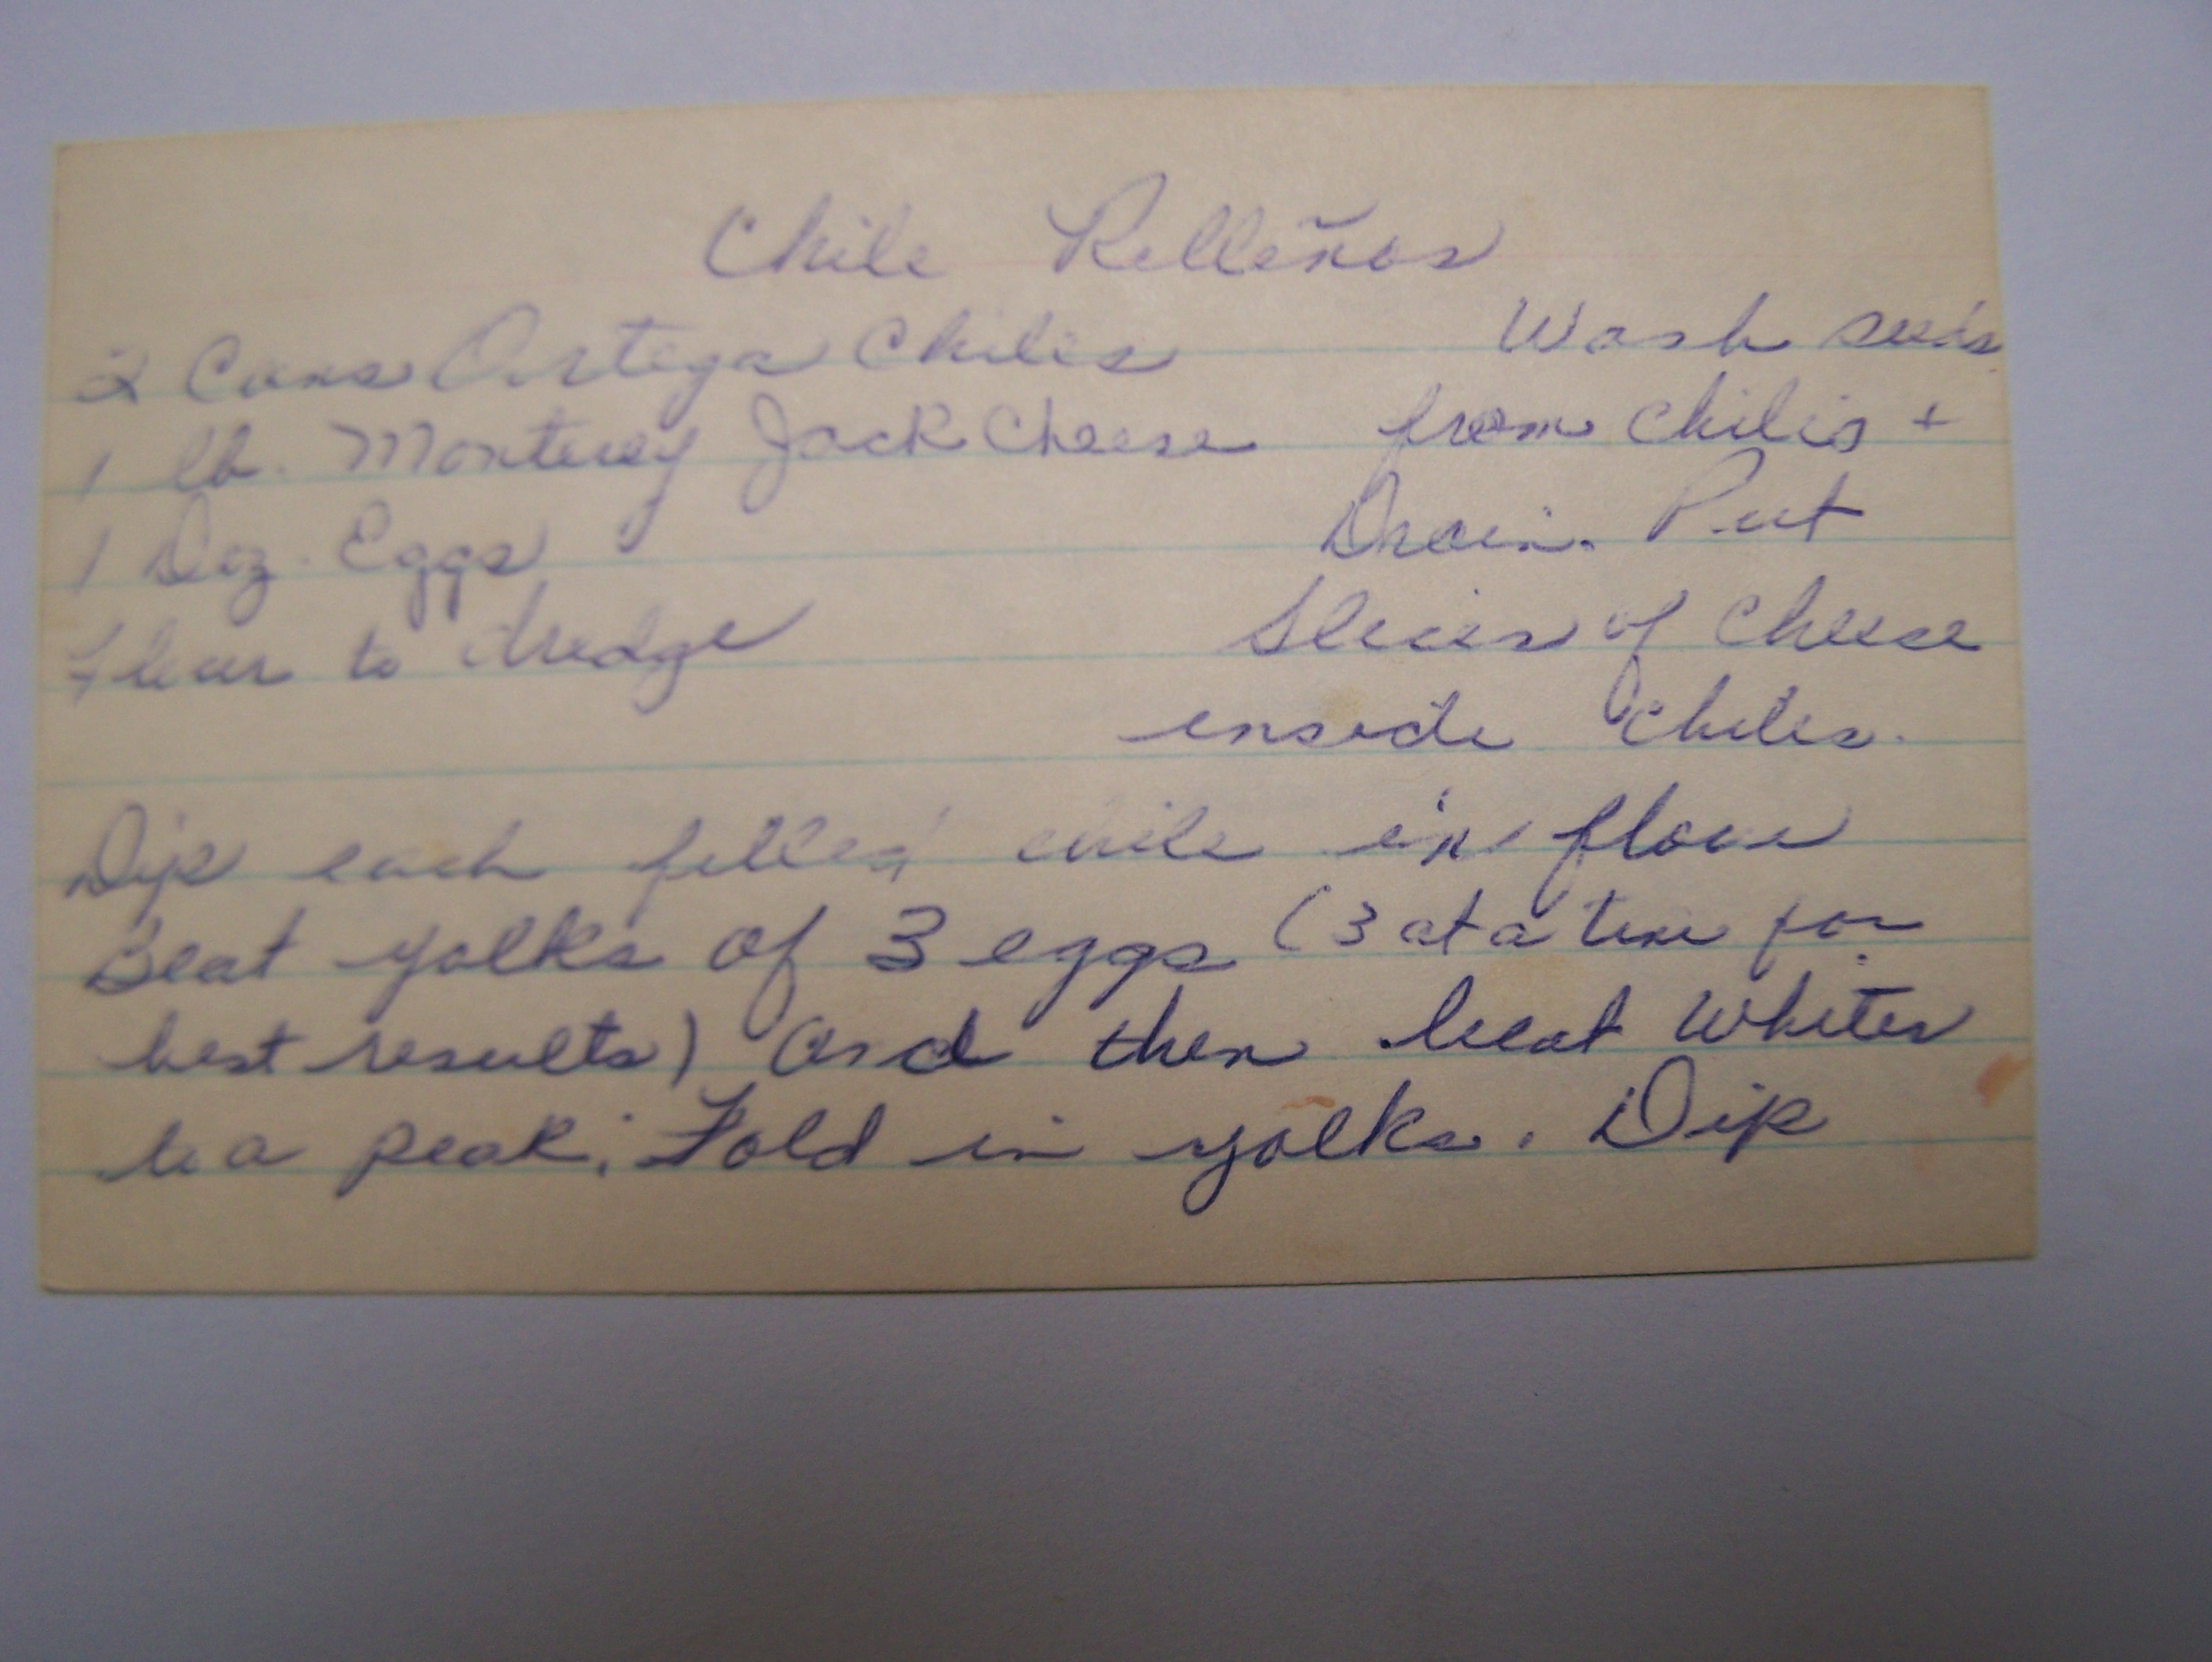 Chile Relleños
2 Cans Ortega Chiles
1 lb. Monterey Jack Cheese
1 Doz. Eggs
Flour to dredge
Wash seeds
from chilis +
Drain. Put
Slices of cheese
inside chiles.
Dip each filled chile in flour
Beat yolks of 3 eggs (3 at a time for
best results) and then beat whites
to a peak. Fold in yolks. Dip